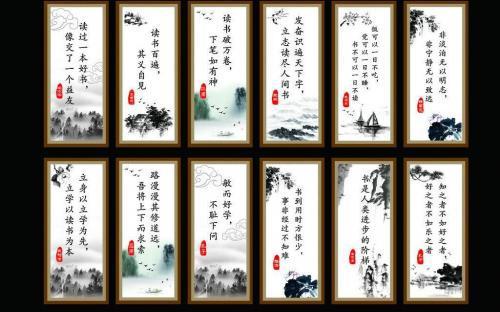 读过一本好书，
像交了一个益友
读书百遍，
其义自见
读书破万卷，
下笔如有神
发奋识遍天下字，
立志读尽人间书
饭可以一日不吃，
觉可以一日不睡，
书不可以一日不读
非淡泊无以明志，
非宁静无以致远
立身以立学为先，
立学以读书为本
路漫漫其修道远，
吾将上下而求索
敏而好学，
不耻下问
书到用时方恨少，
事非经过不知难
书是人类进步的阶梯
知之者不如好之者，
好之者不如乐之者